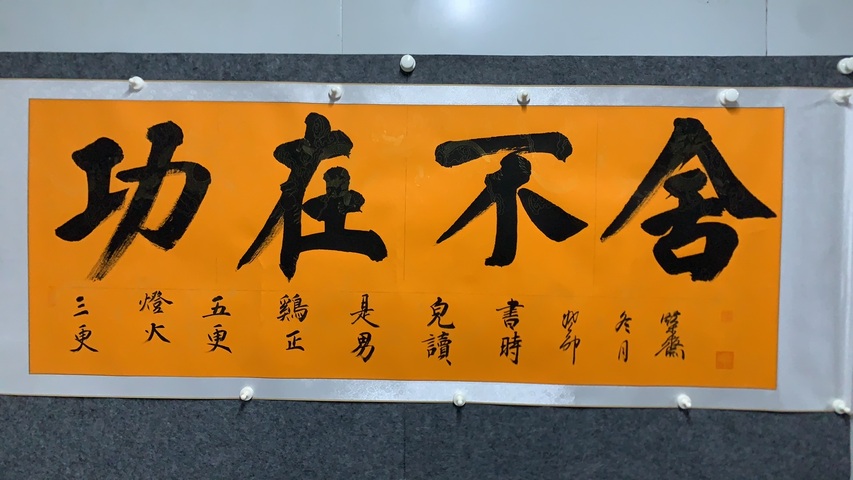 功在不舍
三更
燈火
五更
鷄正
是男
兒讀
書時
癸卯
冬月
齋